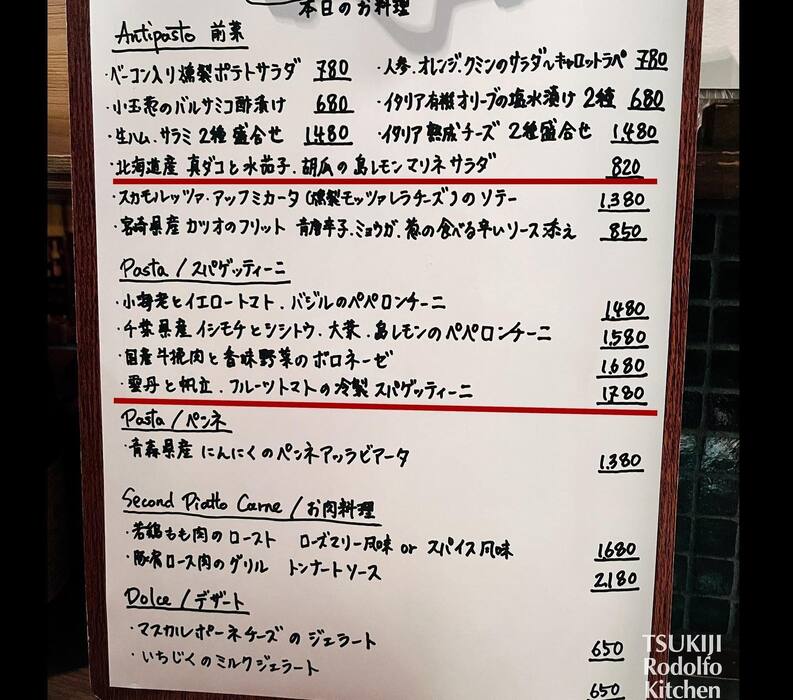 本日のお料理
Antipasto 前菜
・ベーコン入り燻製ポテトサラダ 780
・人参.オレンジ.クミンのサラダ〜キャロットラペ 780
・小玉葱のバルサミコ酢漬け 680
・イタリア有機オリーブの塩水漬け 2種 680
・生ハム.サラミ 2種 盛合せ 1,480
・イタリア熟成チーズ 2種盛合せ 1,480
・北海道産 真ダコと水茄子.胡瓜の島レモンマリネサラダ 820
・スカモルツァ・アッフミカータ(燻製モッツァレラチーズ)のソテー 1,380
・宮崎県産 カツオのフリット 青唐辛子.ミョウガ.葱の食べる辛いソース添え 850
Pasta/スパゲッティーニ
・小海老とイエロートマト.バジルのペペロンチーニ 1,480
・千葉県産イシモチとシシトウ.大葉.島レモンのペペロンチーニ 1,580
・国産牛挽肉と香味野菜のボロネーゼ 1,680
・雲丹と帆立.フルーツトマトの冷製スパゲッティーニ 1,780
Pasta/ペンネ
・青森県産にんにくのペンネアッラビアータ 1,380
Second Piatto Carne/お肉料理
・若鶏もも肉のロースト ローズマリー風味 or スパイス風味 1680
・豚肩ロース肉のグリル トンナートソース 2,180
Dolce/デザート
・マスカルポーネチーズのジェラート 650
・いちじくのミルクジェラート 650
TSUKIJI
Rodolfo
Kitchen